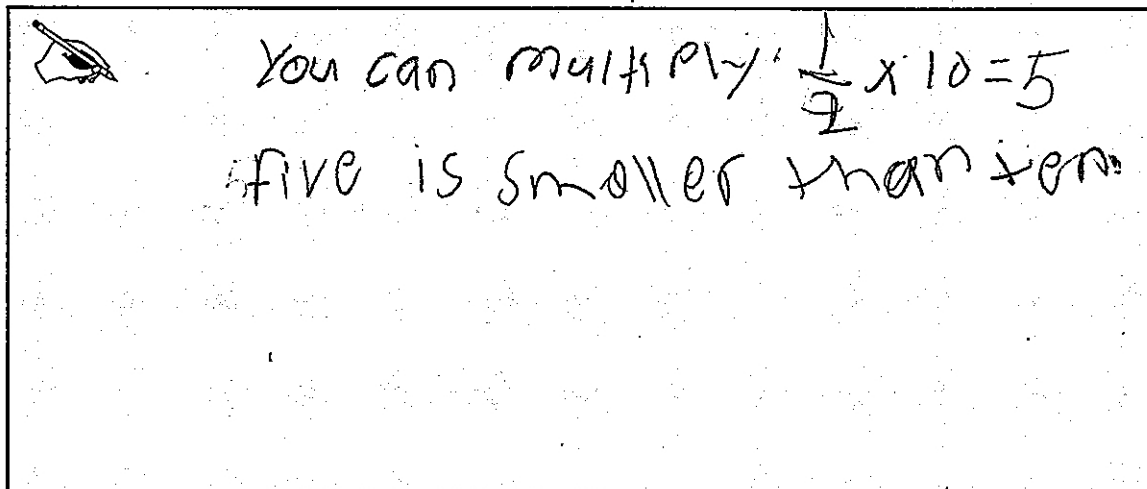 You can multiply. 1/2 x 10 = 5
five is smaller than ten.